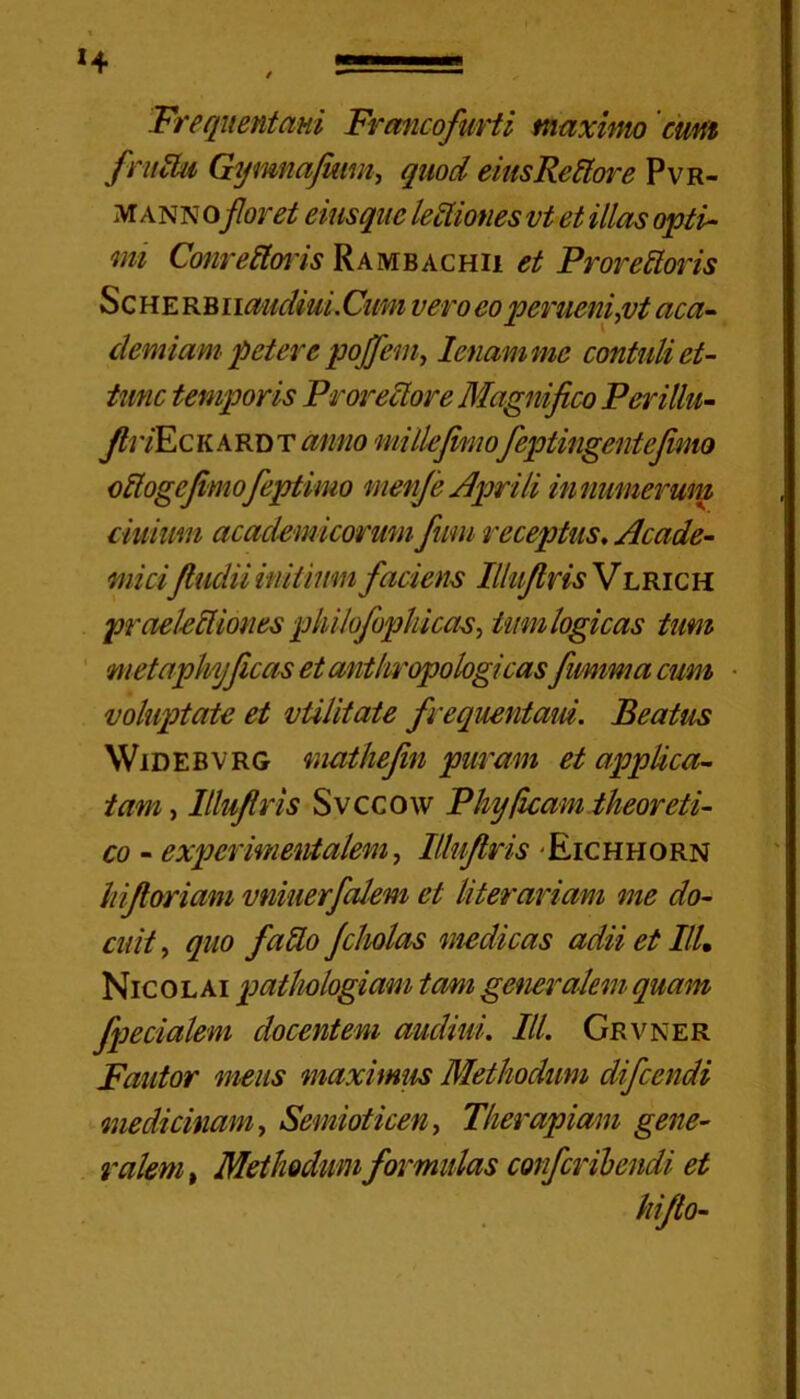 14
Frequentaui Francofurti maximo cum
fructu Gymnaſium, quod eiusRectore PVR-
MANNO floret eiusque lectiones vt et illas opti-
mi Conrectoris RAMBACHII et Prorectoris
SCHERBII audiui. Cum vero eo perueni, vt aca-
demiam petere poſſem, Ienam me contuli et-
tunc temporis Prorectore Magnifico Perillu-
ſtri ECKARDT anno milleſimo ſeptingenteſimo
octogeſimo ſeptimo menſe Aprili in numerum
ciuium academicorum ſum receptus. Acade-
mici ſtudii initium faciens Illuſtris VLRICH
praelectiones philoſophicas, tum logicas tum
metaphyſicas et anthropologicas ſumma cum
voluptate et vtilitate frequentaui. Beatus
WIDEBVRG matheſin puram et applica-
tam, Illuſtris SVCCOW Phyſicam theoreti-
co - experimentalem, Illuſtris EICHHORN
hiſtoriam vniuerſalem et literariam me do-
cuit, quo facto ſcholas medicas adii et Ill.
NICOLAI pathologiam tam generalem quam
ſpecialem docentem audiui. Ill. GRVNER
Fautor meus maximus Methodum diſcendi
medicinam, Semioticen, Therapiam gene-
ralem, Methodum formulas conſcribendi et
hiſto-